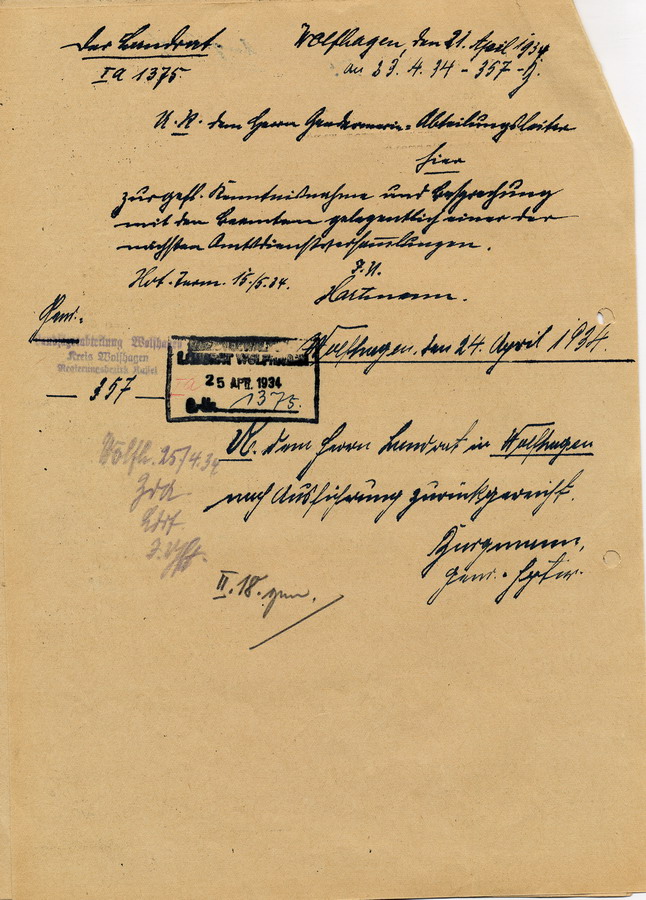 Der Landrat.
IA 1375.
Wolfhagen, den 21. April 1934
an 23.4.34 - 357 -
U. R. dem Herrn Gendarmerie-Abteilungsleiter
hier
zur gefl. Kenntnisnahme und Besprechung
mit den Beamten gelegentlich einer der
nächsten Amtsdienstversammlungen.
J.V.
Not. Term. 15./5.34.
Hartmann.
Gend.-
abteilung Wolfhagen
Kreis Wolfhagen
Regierungsbezirk Kassel
- 357 -
25 APR. 1934
1375.
Wolfhagen, den 24. April 1934.
U. dem Herrn Landrat in Wolfhagen
nach Ausführung zurückgereicht.
Wolfh. 25/4.34
ZdA
Ldrt
Gend.-Hptw.
II. 18. gen.